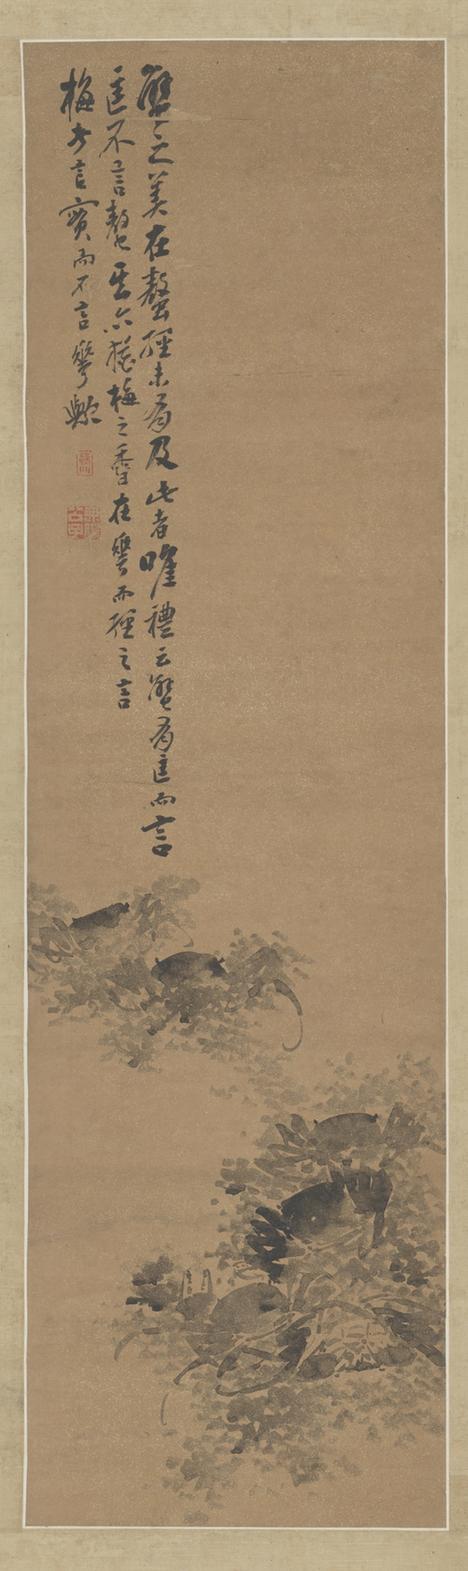 蟹之美在螯經未有及此者唯禮云蟹有匡而言
匡不言螯其亦猶梅之香在萼而經之言
梅言實而不言萼歟